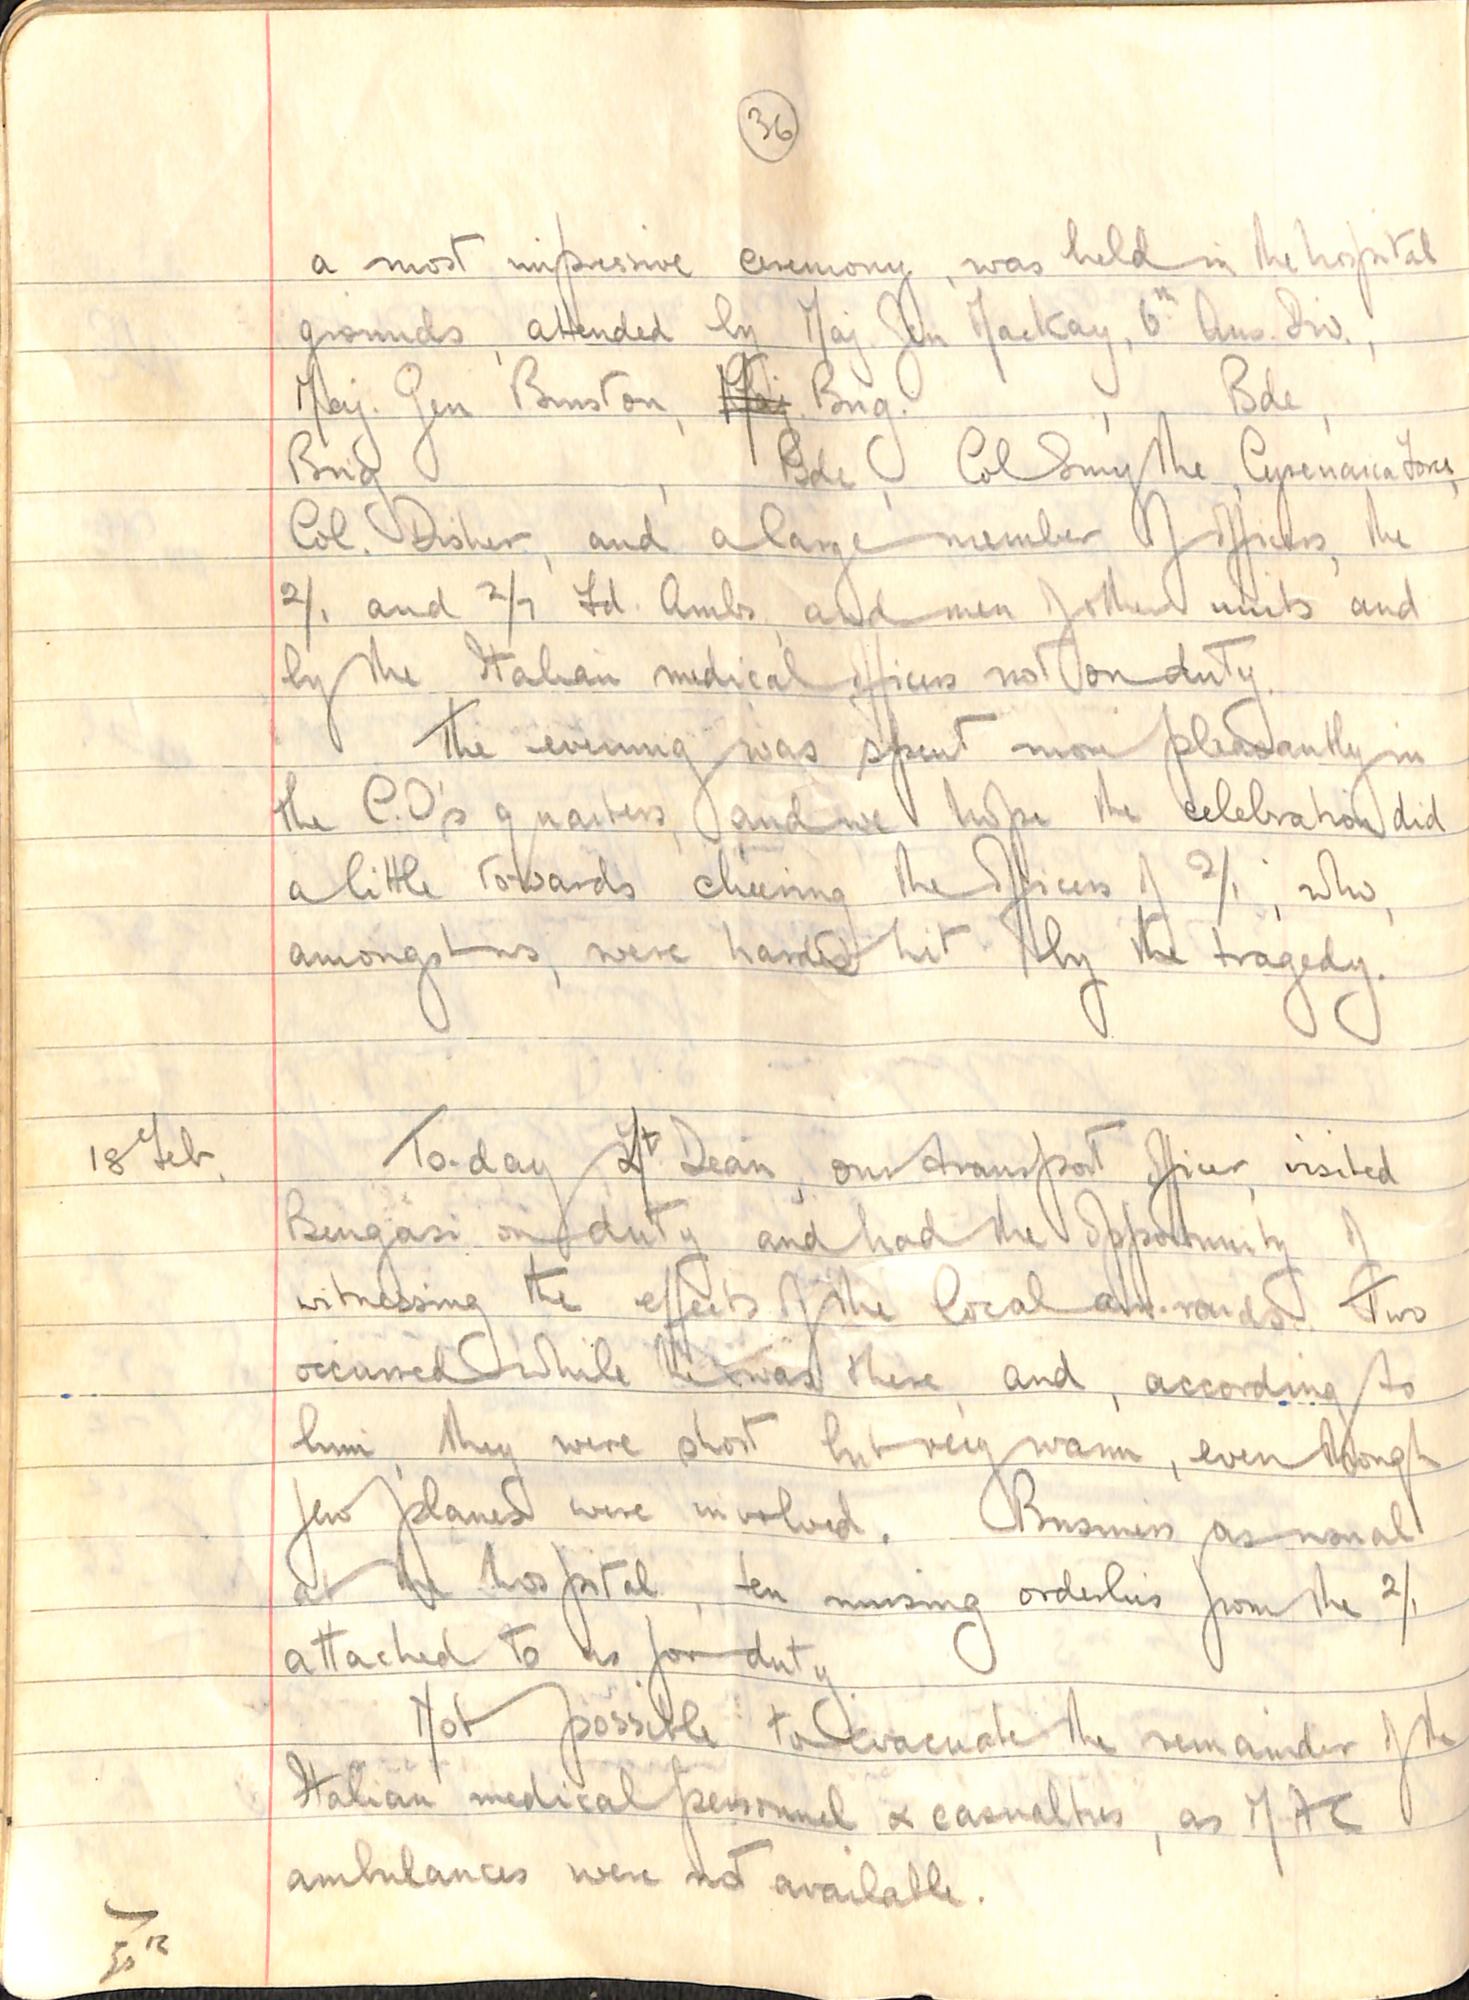 36
a most impressive ceremony, was held in the hospital
grounds, attended by Maj. Gen Mackay, 6th Aus. Div.,
Maj. Gen Burston, Maj. Brig. , Bde,
Brig , Bde, Col Smythe, Cyrenaica Force,
Col. Disher, and a large member of officers, the
2/1 and 2/7 Fd. Ambs, and men of other units and
by the Italian medical officers not on duty.
The evening was spent more pleasantly in
the C.O's quarters, and we hope the celebration did
a little towards cheering the officers of 2/1, who,
amongst us, were hardest hit by the tragedy.
18 Feb. To-day Lt Dean, our transport officer, visited
Bengasi on duty and had the opportunity of
witnessing the effects of the local air-raids. Two
occurred while he was there, and, according to
him, they were short but very warm, even though
few planes were involved. Business as usual
at the hospital, ten nursing orderlies from the 2/1
attached to us for duty.
Not possible to evacuate the remainder of the
Italian medical personnel & casualties, as MAC
ambulances were not available.